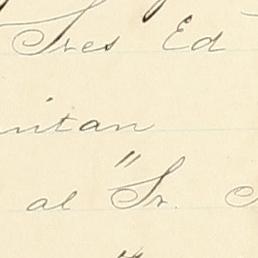 Sres Ed
nitan
"
al Sr.